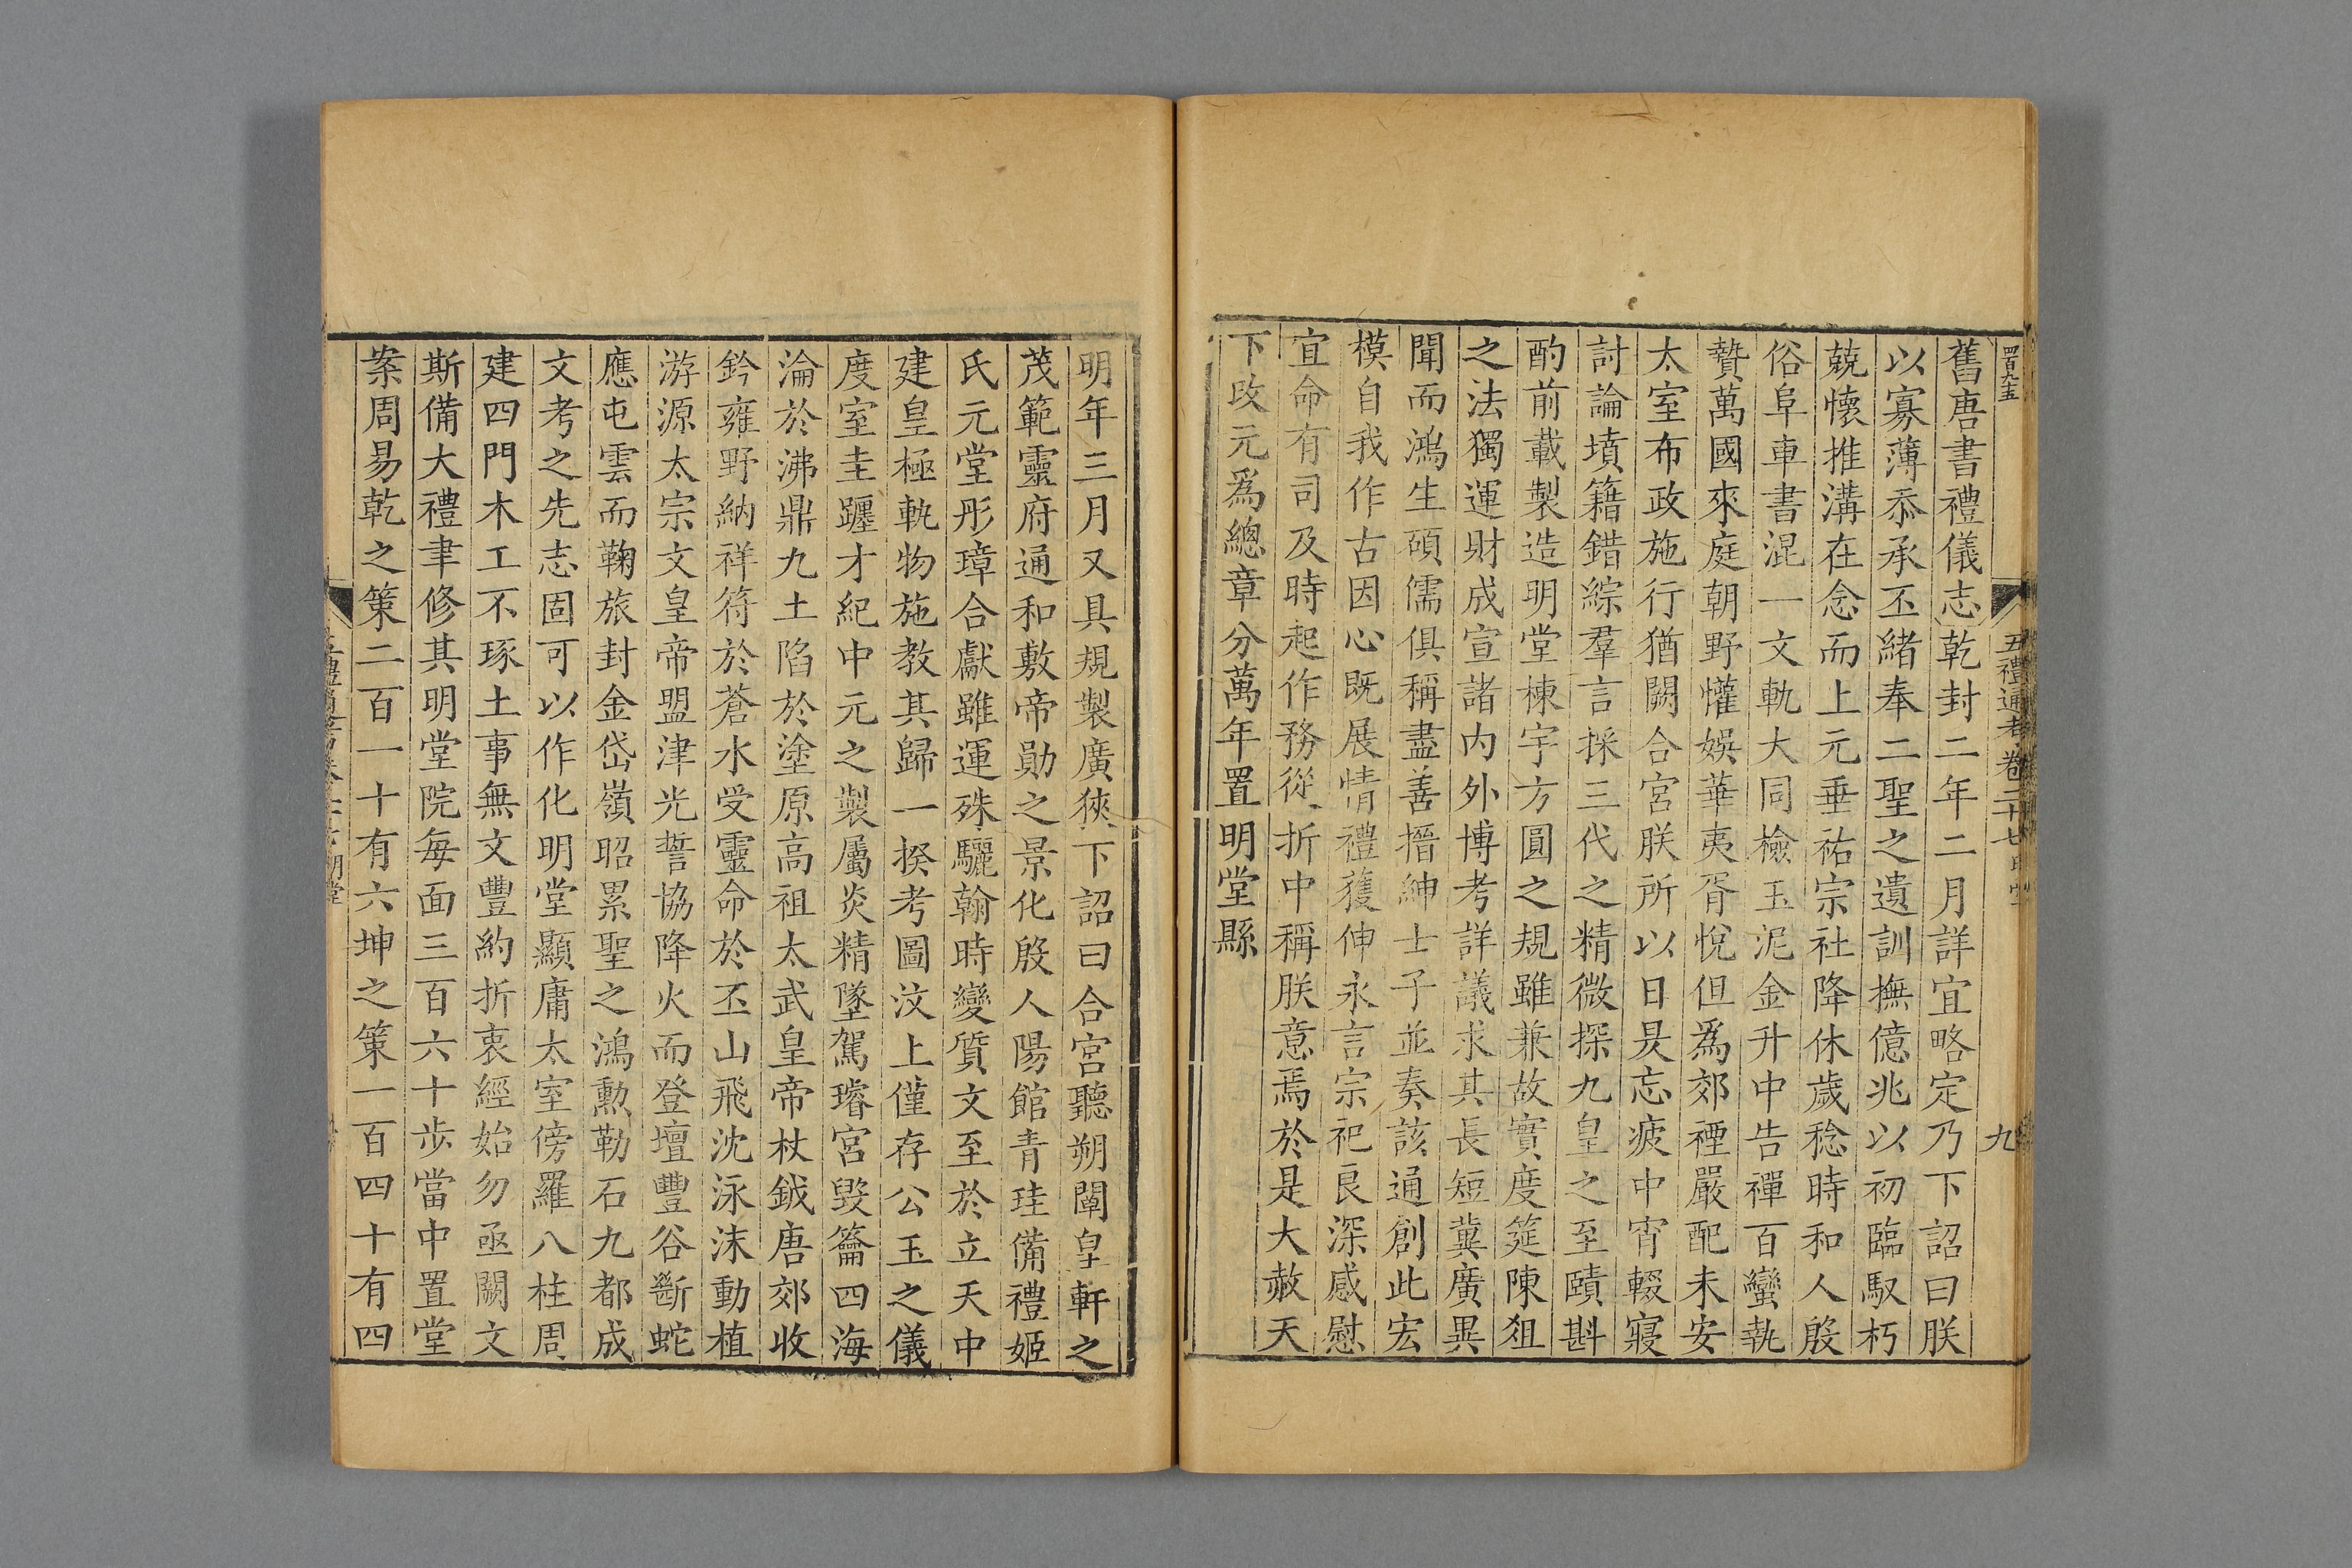 四百九十五
五禮通考 卷二十七 明堂
九
舊唐書禮儀志乾封二年二月詳宜略定乃下詔曰朕
以寡薄忝承丕緒奉二聖之遺訓撫億兆以初臨馭朽
兢懷推溝在念而上元垂祐宗社降休歲稔時和人殷
俗阜車書混一文軌大同檢玉泥金升中告禪百蠻執
贄萬國來庭朝野懽娛華夷胥悅但爲郊禋嚴配未安
太室布政施行猶闕合宮朕所以日昃忘疲中宵輟寢
討論墳籍錯綜羣言採三代之精微探九皇之至賾斟
酌前載製造明堂棟宇方圓之規雖兼故實度筵陳俎
之法獨運財成宣諸内外博考詳議求其長短冀廣異
聞而鴻生碩儒俱稱盡善搢紳士子並奏該通創此宏
模自我作古因心既展情禮獲伸永言宗祀良深感慰
宜命有司及時起作務從折中稱朕意焉於是大赦天
下改元爲總章分萬年置明堂縣
明年三月又具規製廣狹下詔曰合宮聽朔闡皇軒之
茂範靈府通和敷帝勛之景化殷人陽館青珪備禮姬
氏元堂彤璋合獻雖運殊驪翰時變質文至於立天中
建皇極軌物施教其歸一揆考圖汶上僅存公玉之儀
度室圭躔才紀中元之製屬炎精墜駕璿宮毀籥四海
淪於沸鼎九土陷於塗原高祖太武皇帝杖鉞唐郊收
鈐雍野納祥符於蒼水受靈命於丕山飛沈泳沫動植
游源太宗文皇帝盟津光誓協降火而登壇豐谷斷蛇
應屯雲而鞠旅封金岱嶺昭累聖之鴻勳勒石九都成
文考之先志固可以作化明堂顯庸太室傍羅八柱周
建四門木工不琢土事無文豐約折衷經始勿亟闕文
斯備大禮聿修其明堂院每面三百六十步當中置堂
案周易乾之策二百一十有六坤之策一百四十有四